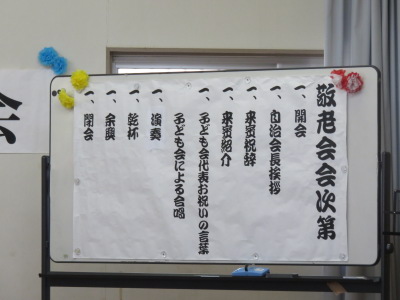 敬老会会次第
一、開会
一、自治会長挨拶
一、来賓祝辞
一、来賓紹介
一、子ども会代表お祝いの言葉
子ども会による合唱
一、演奏
一、乾杯
一、余興
一、閉会
会